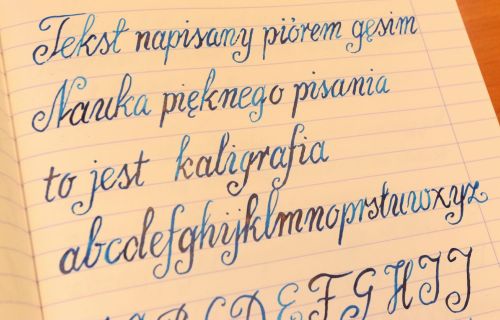 Tekst napisany piórem gęsim
Nauka pięknego pisania
to jest kaligrafia
abcdefghijklmnoprstuwxyz
ABCDEFGHIJ